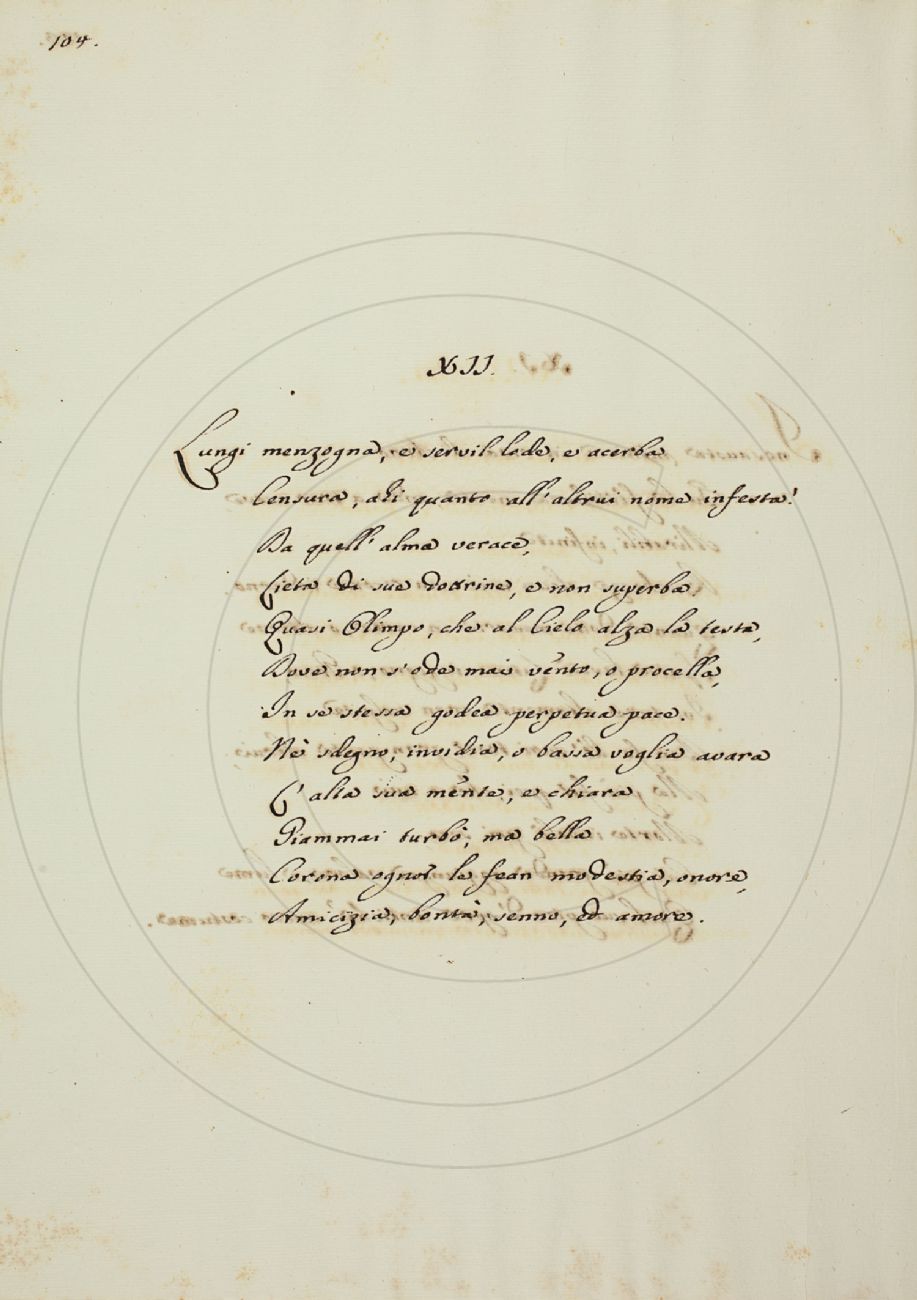 104.
XII.
Lungi menzogna, e servil lode, e acerba
Censura, ahi quanto all'altrui nome infesta!
Da quell'alma verace,
Lieta di sue dottrine, e non superba.
Quasi Olimpo, che al Cielo alza la testa,
Dove non s'ode mai vento, o procella,
In se stessa godea perpetua pace.
Nè sdegno, invidia, o bassa voglia avara
L'alta sua mente, e chiara
Giammai turbò; ma bella
Corona ognor le fean modestia, onore,
Amicizia, bontà, senno, ed amore.